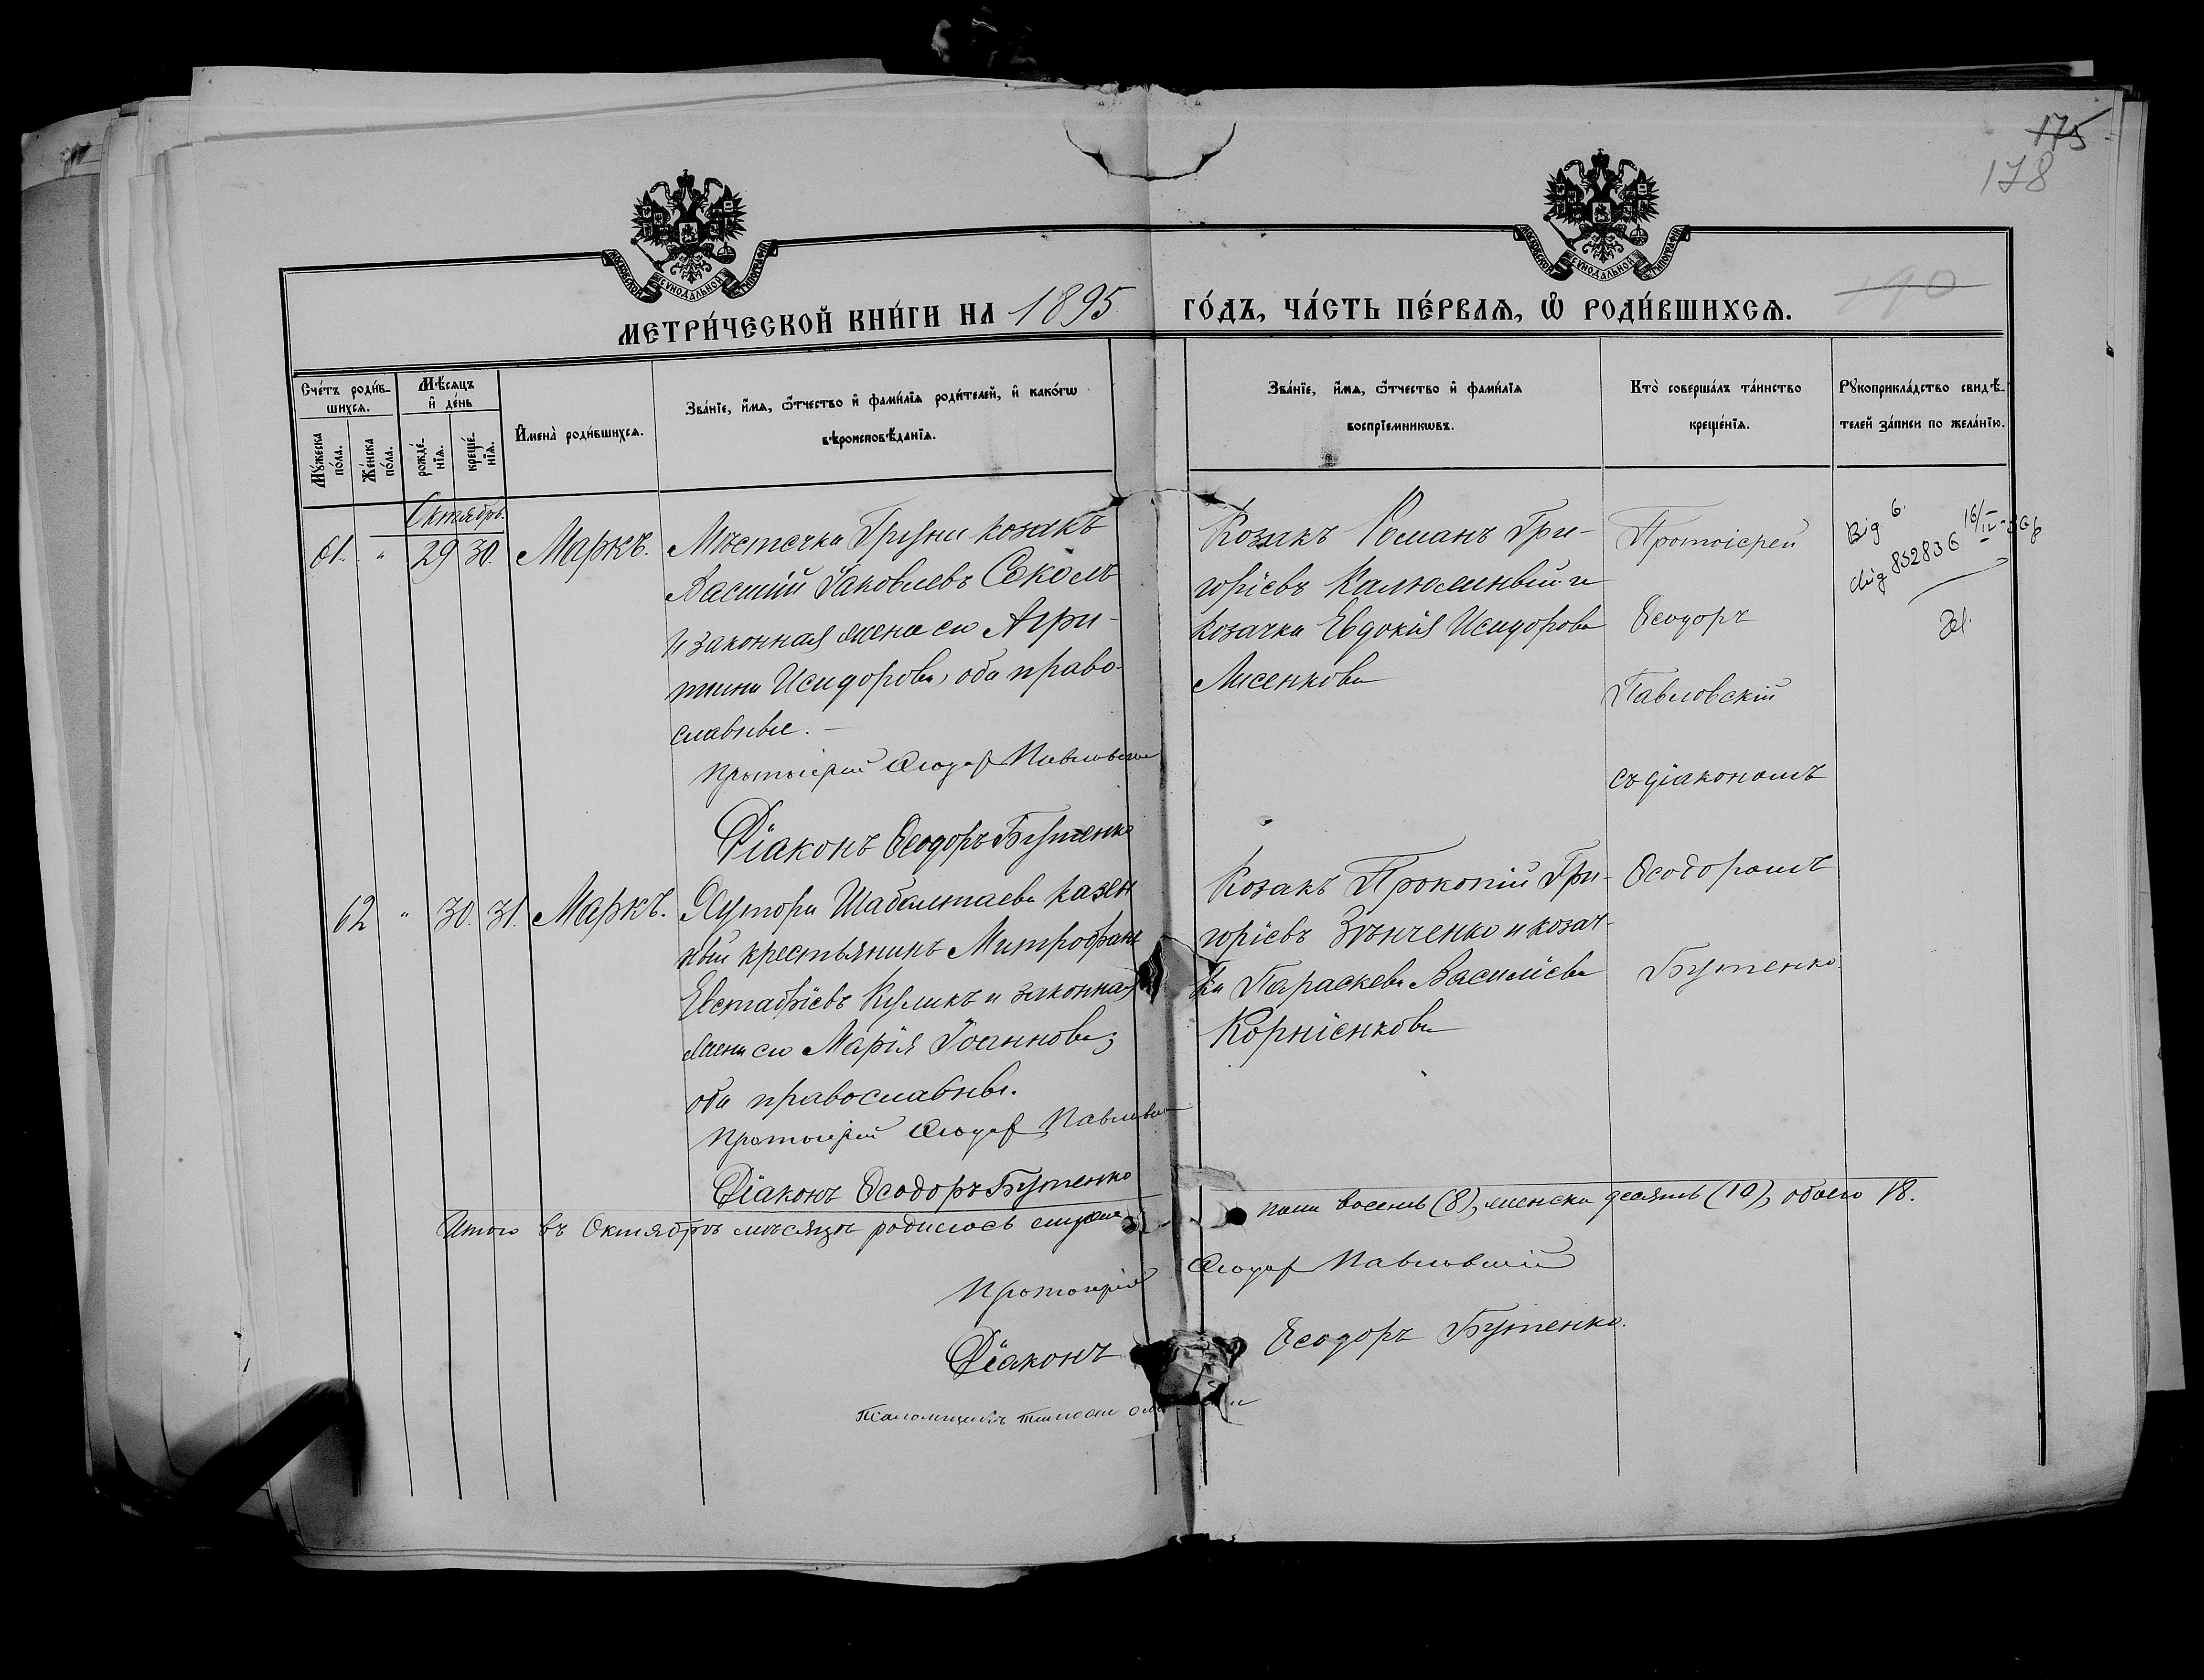 175
178
190
МОСКОВСКОЙ СѴНОДАЛЬНОЙ ТИПОГРАФІИ
МОСКОВСКОЙ СѴНОДАЛЬНОЙ ТИПОГРАФІИ
МЕТРИ́ЧЕСКОЙ КНИ́ГИ НА 1895 ГО́ДЪ, ЧА́СТЬ ПЕ́РВАѦ, Ѡ҆ РОДИ́ВШИХСѦ.
Сче́тъ роди́вшихсѧ.
Мꙋ́жеска по́ла.
Же́нска по́ла.
Мѣ́сѧцъ и҆ де́нь
рожде́нїѧ.
креще́нїѧ.
И҆мена̀ роди́вшихсѧ.
Зва́нїе, и҆́мѧ, ѻ҆́тчество и҆ фами́лїѧ роди́телей, и҆ како́гѡ
вѣроисповѣ́данїѧ.
Зва́нїе, и҆́мѧ, ѻ҆́тчество и҆ фами́лїѧ
воспрїемникѡвъ.
Кто̀ соверша́лъ та́инство
креще́нїѧ.
Рꙋкоприкла́дство свидѣ́-
телей за́писи по жела́нїю.
Октябрь.
61. " 29 30. Маркъ.
Мѣстечка Груни козакъ
Василій Іаковлевъ Соколъ
и законная жена его Агри-
пина Исидорова, оба право-
славные. –
Протоіерей Ѳеодоръ Павловскій
Діаконъ Ѳеодоръ Бутенко
Козакъ Романъ Гри-
горіевъ Калюжный и
козачка Евдокія Исидорова
Лисенкова
Протоіерей
Ѳеодоръ
Павловскій
съ діакономъ
Ѳеодоромъ
Бутенко.
62 " 30. 31. Маркъ.
Хутора Шабалтаева казен
ный крестьянинъ Митрофанъ
Евстафіевъ Куликъ и законная
жена его Марія Іоаннова;
оба православны.
Протоіерей Ѳеодоръ Павловскій
Діаконъ Ѳеодоръ Бутенко
Козакъ Прокопій Гри-
горіевъ Зѣнченко и козач-
ка Параскева Василіева
Корніенкова
Итого въ Октябрѣ мѣсяцѣ родилось мужеска пола восемь (8), женска десять (10), обоего 18.
Протоіерей Ѳеодоръ Павловскій
Діаконъ Ѳеодоръ Бутенко.
Псаломщикъ